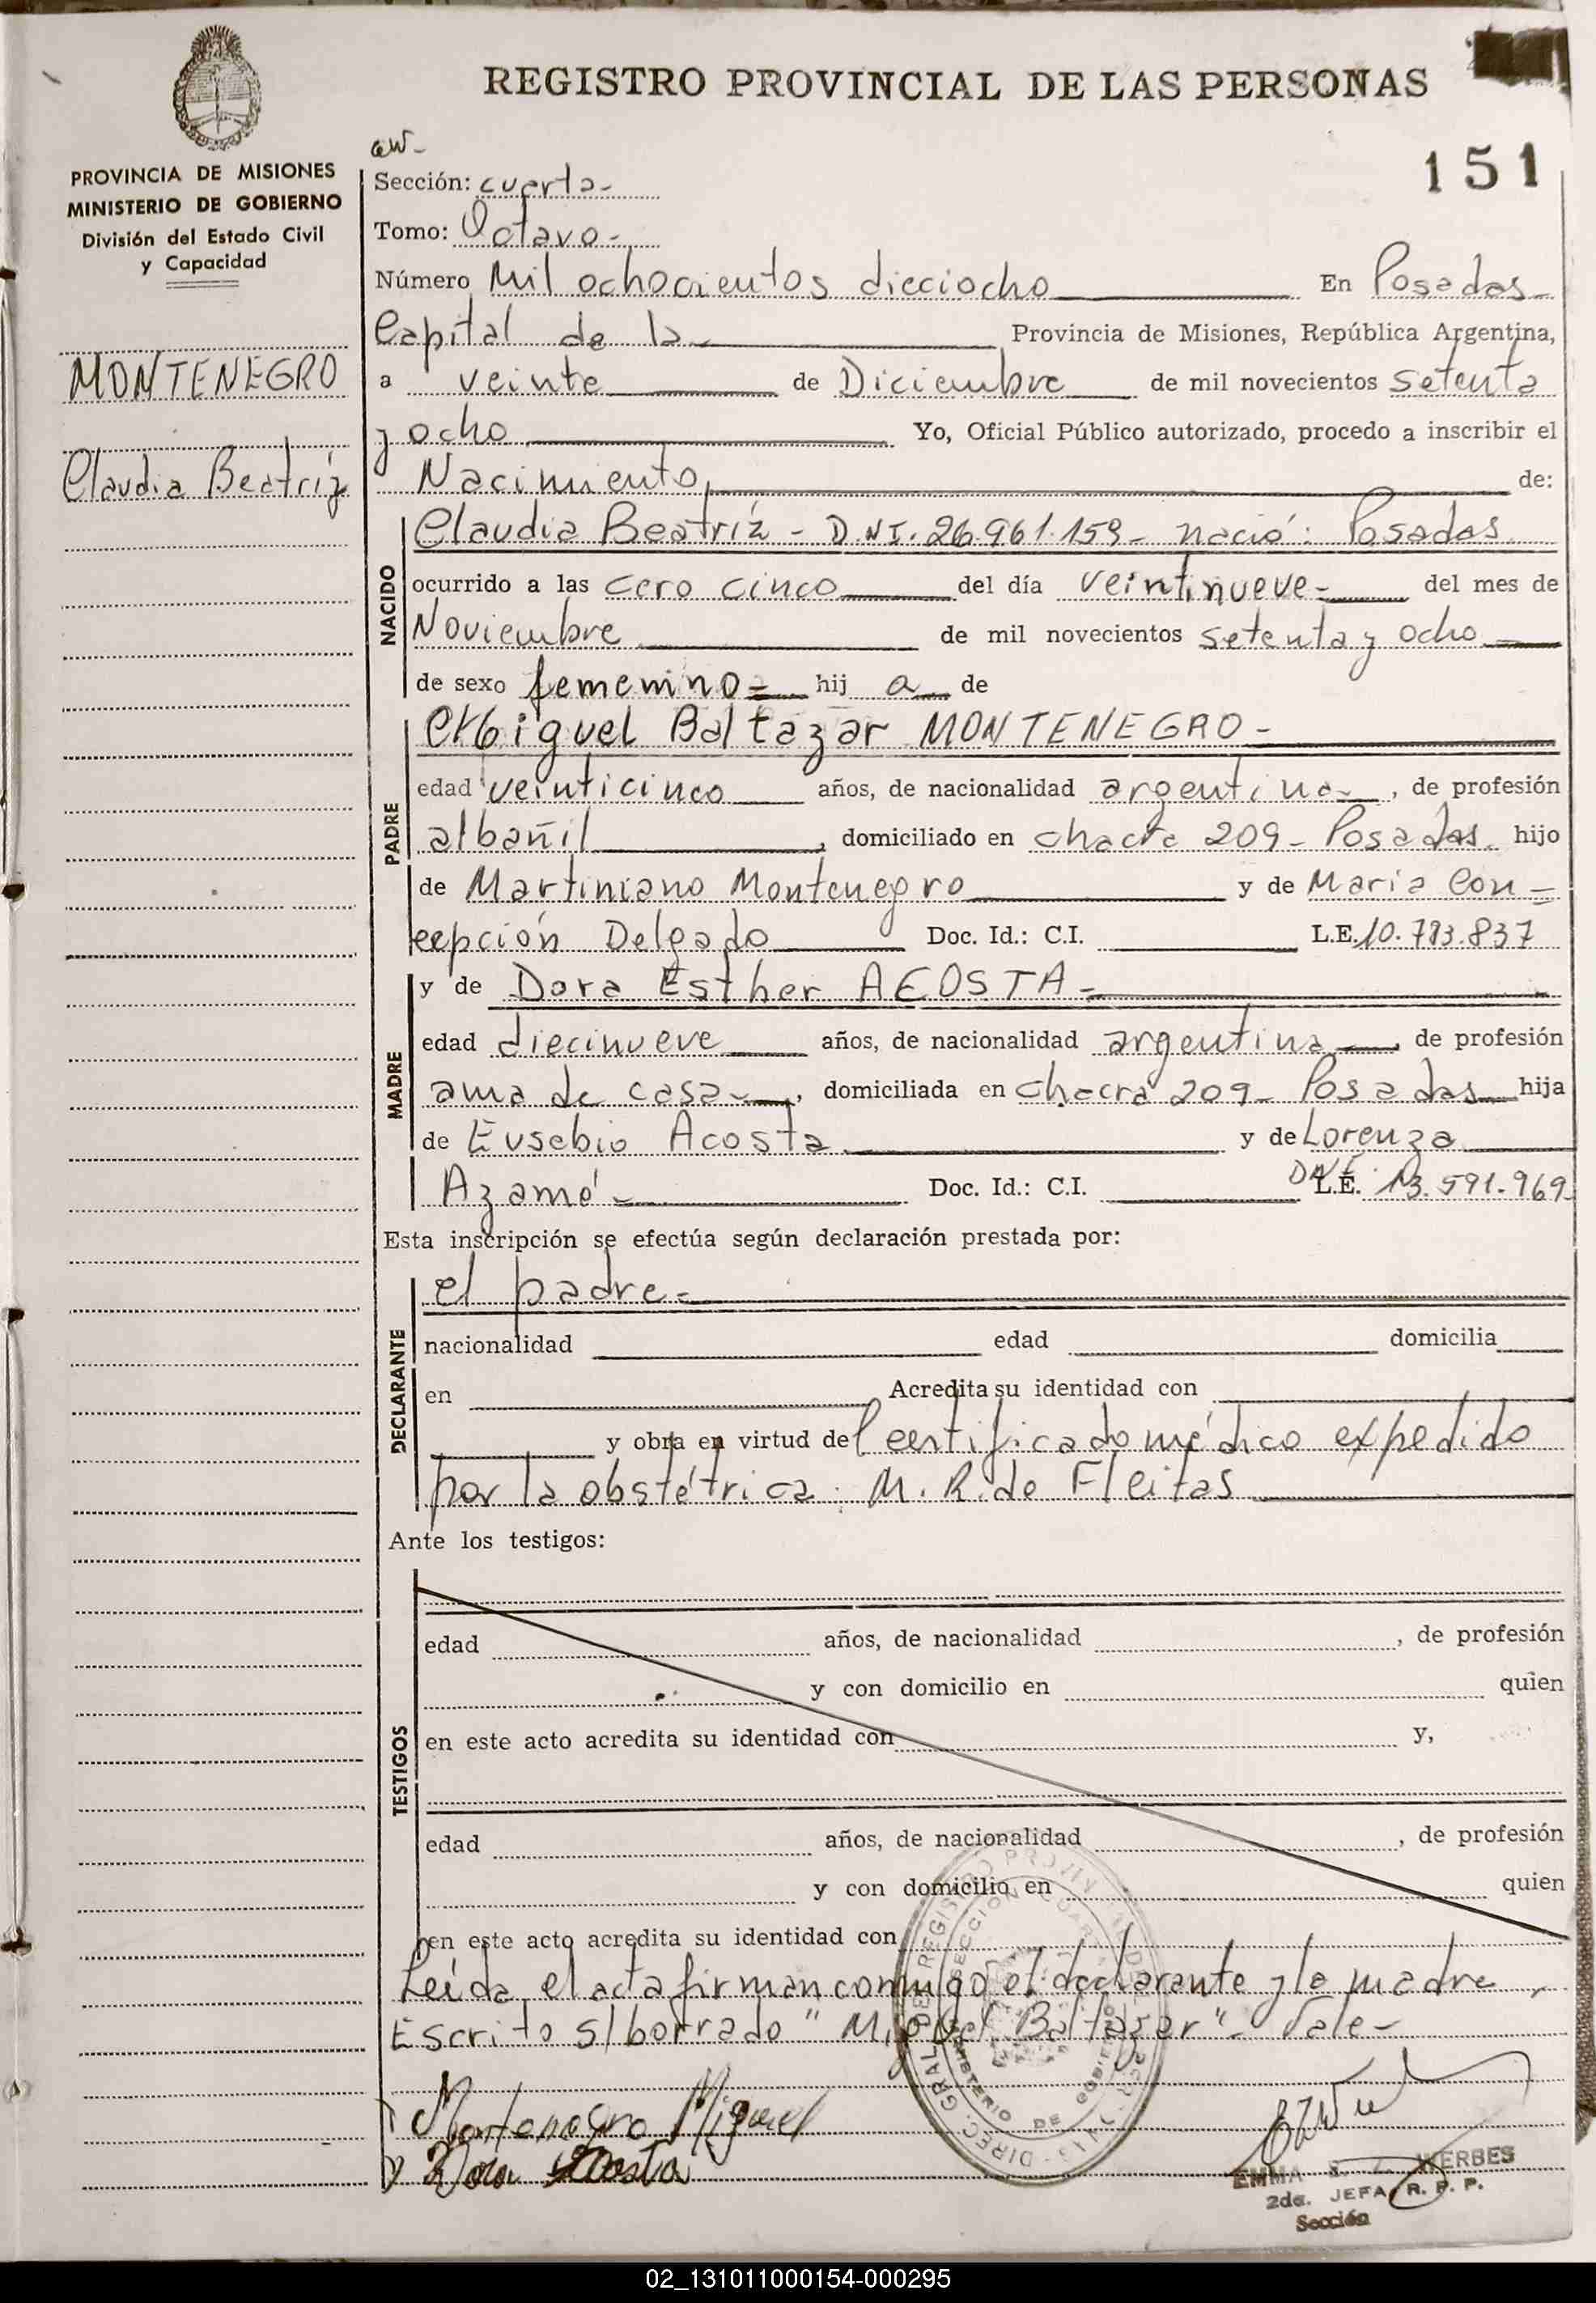 REGISTRO PROVINCIAL DE LAS PERSONAS
151
PROVINCIA DE MISIONES
MINISTERIO DE GOBIERNO
División del Estado Civil
y Capacidad
MONTENEGRO
Claudia Beatríz
Sección: cuarta-
Tomo: Octavo-
Número Mil ochocientos dieciocho En Posadas-
Capital de la- Provincia de Misiones, República Argentina,
a veinte de Diciembre de mil novecientos setenta
y ocho Yo, Oficial Público autorizado, procedo a inscribir el
Nacimiento de:
NACIDO
Claudia Beatríz - D.N.I. 26.961.159- nació: Posadas
ocurrido a las cero cinco del día veintinueve- del mes de
Noviembre de mil novecientos setenta y ocho
de sexo fememino= hij a de
PADRE
Miguel Baltazar MONTENEGRO-
edad veinticinco años, de nacionalidad argentina-, de profesión
albañil, domiciliado en chacra 209- Posadas hijo
de Martiniano Montenegro y de María Con=
cepción Delgado Doc. Id.: C.I. L.E. 10.783.837
MADRE
y de Dora Esther ACOSTA-
edad diecinueve años, de nacionalidad argentina, de profesión
ama de casa-, domiciliada en chacra 209- Posadas hija
de Eusebio Acosta y de Lorenza
Azamé- Doc. Id.: C.I. L.E. 13.591.969
Esta inscripción se efectúa según declaración prestada por:
DECLARANTE
el padre=
nacionalidad edad domicilia
en Acredita su identidad con
y obra en virtud del certificado médico expedido
por la obstétrica: M. R. de Fleitas
Ante los testigos:
TESTIGOS
edad años, de nacionalidad , de profesión
y con domicilio en quien
en este acto acredita su identidad con y,
edad años, de nacionalidad , de profesión
y con domicilio en quien
en este acto acredita su identidad con
Leída el acta firman conmigo el declarante y la madre,
Escrito s/borrado "Miguel Baltazar"- Vale-
Montenegro Miguel
Dora Acosta
EMMA WERBES
2da. JEFA R. P. P.
Sección
02_131011000154-000295